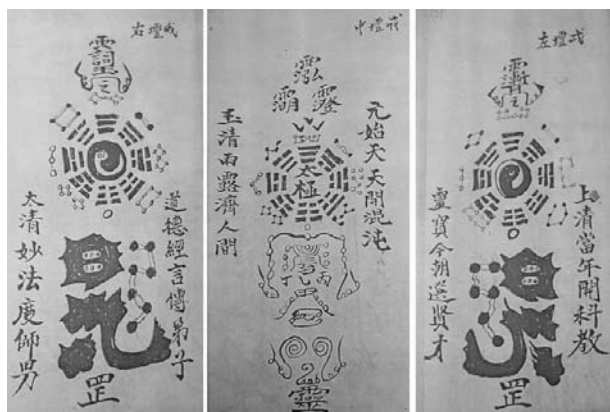 戒壇右
道德經言傳弟子
太清妙法度師男
罡
戒壇中
元始天天開混沌
太極
玉清雨露濟人間
靈
戒壇左
上清當年開科教
靈寶今朝選賢才
罡